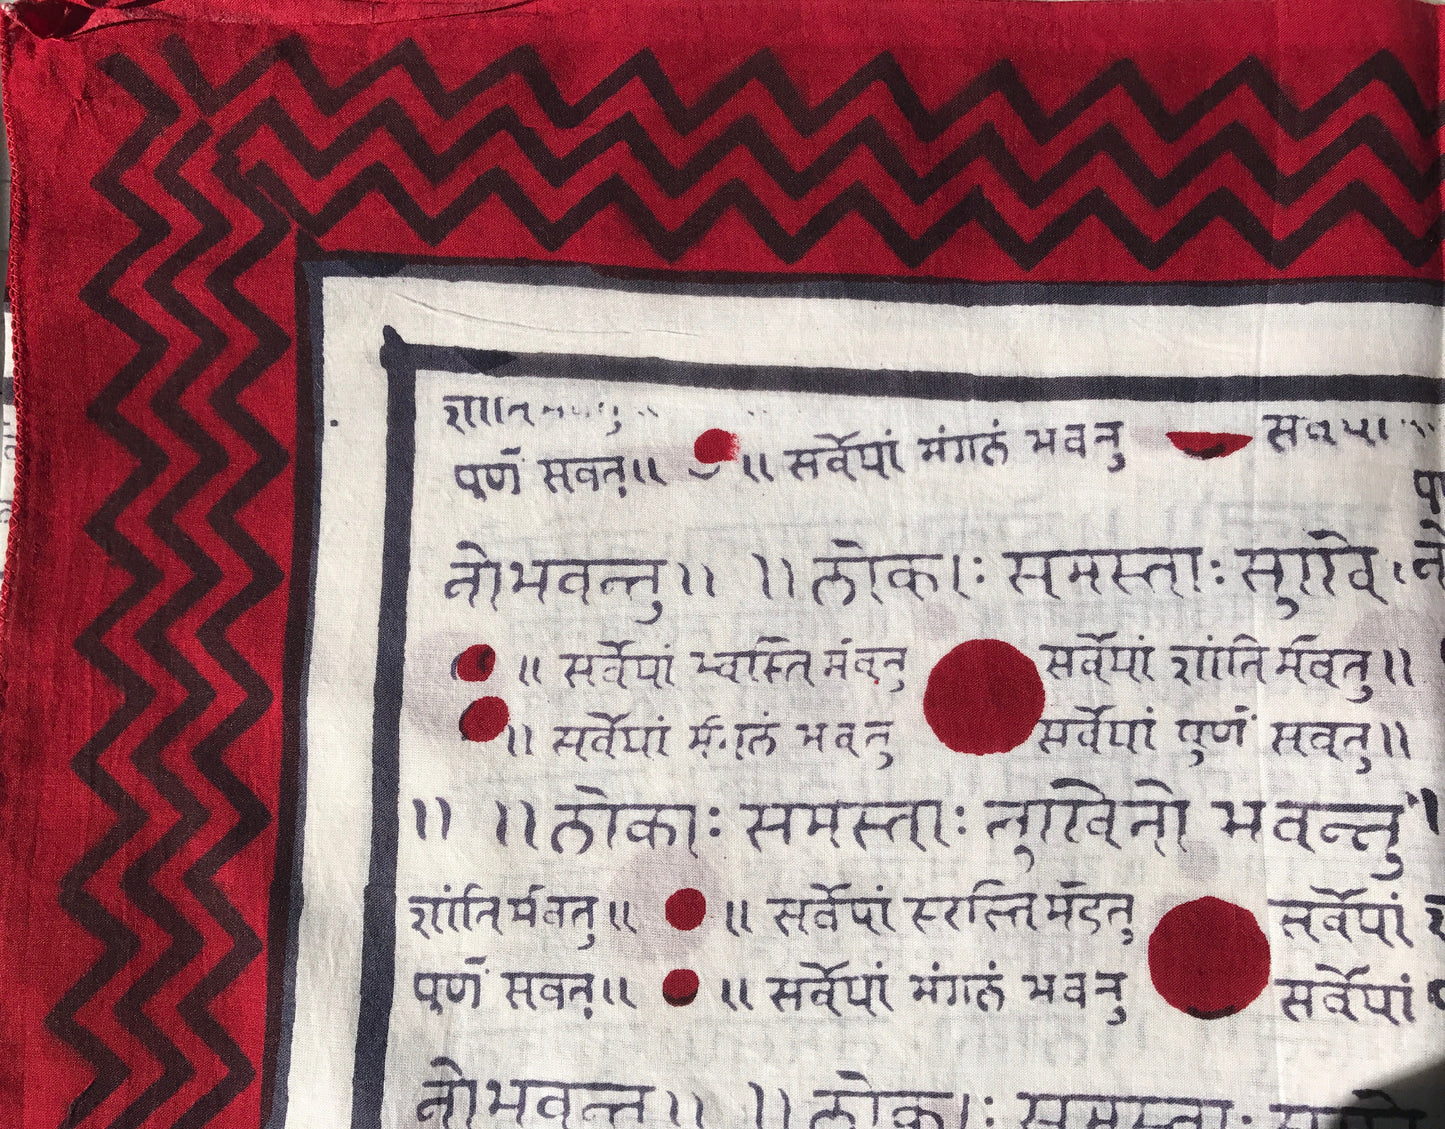 सर्वेषां मंगलं भवतु
पूर्ण सवतु॥ ॥
नोभवन्तु॥ ॥लोकाः समस्ताः सुखि
॥ सर्वेषां स्वस्ति र्भवतु सर्वेषां शांति र्भवतु॥
॥ सर्वेषां मंगलं भवतु सर्वेषां पुर्णं सवतु॥
॥ ॥लोकाः समस्ताः सुखिनो भवन्तु
शांति र्भवतु॥ ॥ सर्वेषां स्वस्ति र्भवतु सर्वेषां
पूर्णं सवतु॥ ॥ सर्वेषां मंगलं भवतु सर्वेषां
नोभवन्तु॥ ॥लोकाः समस्ताः